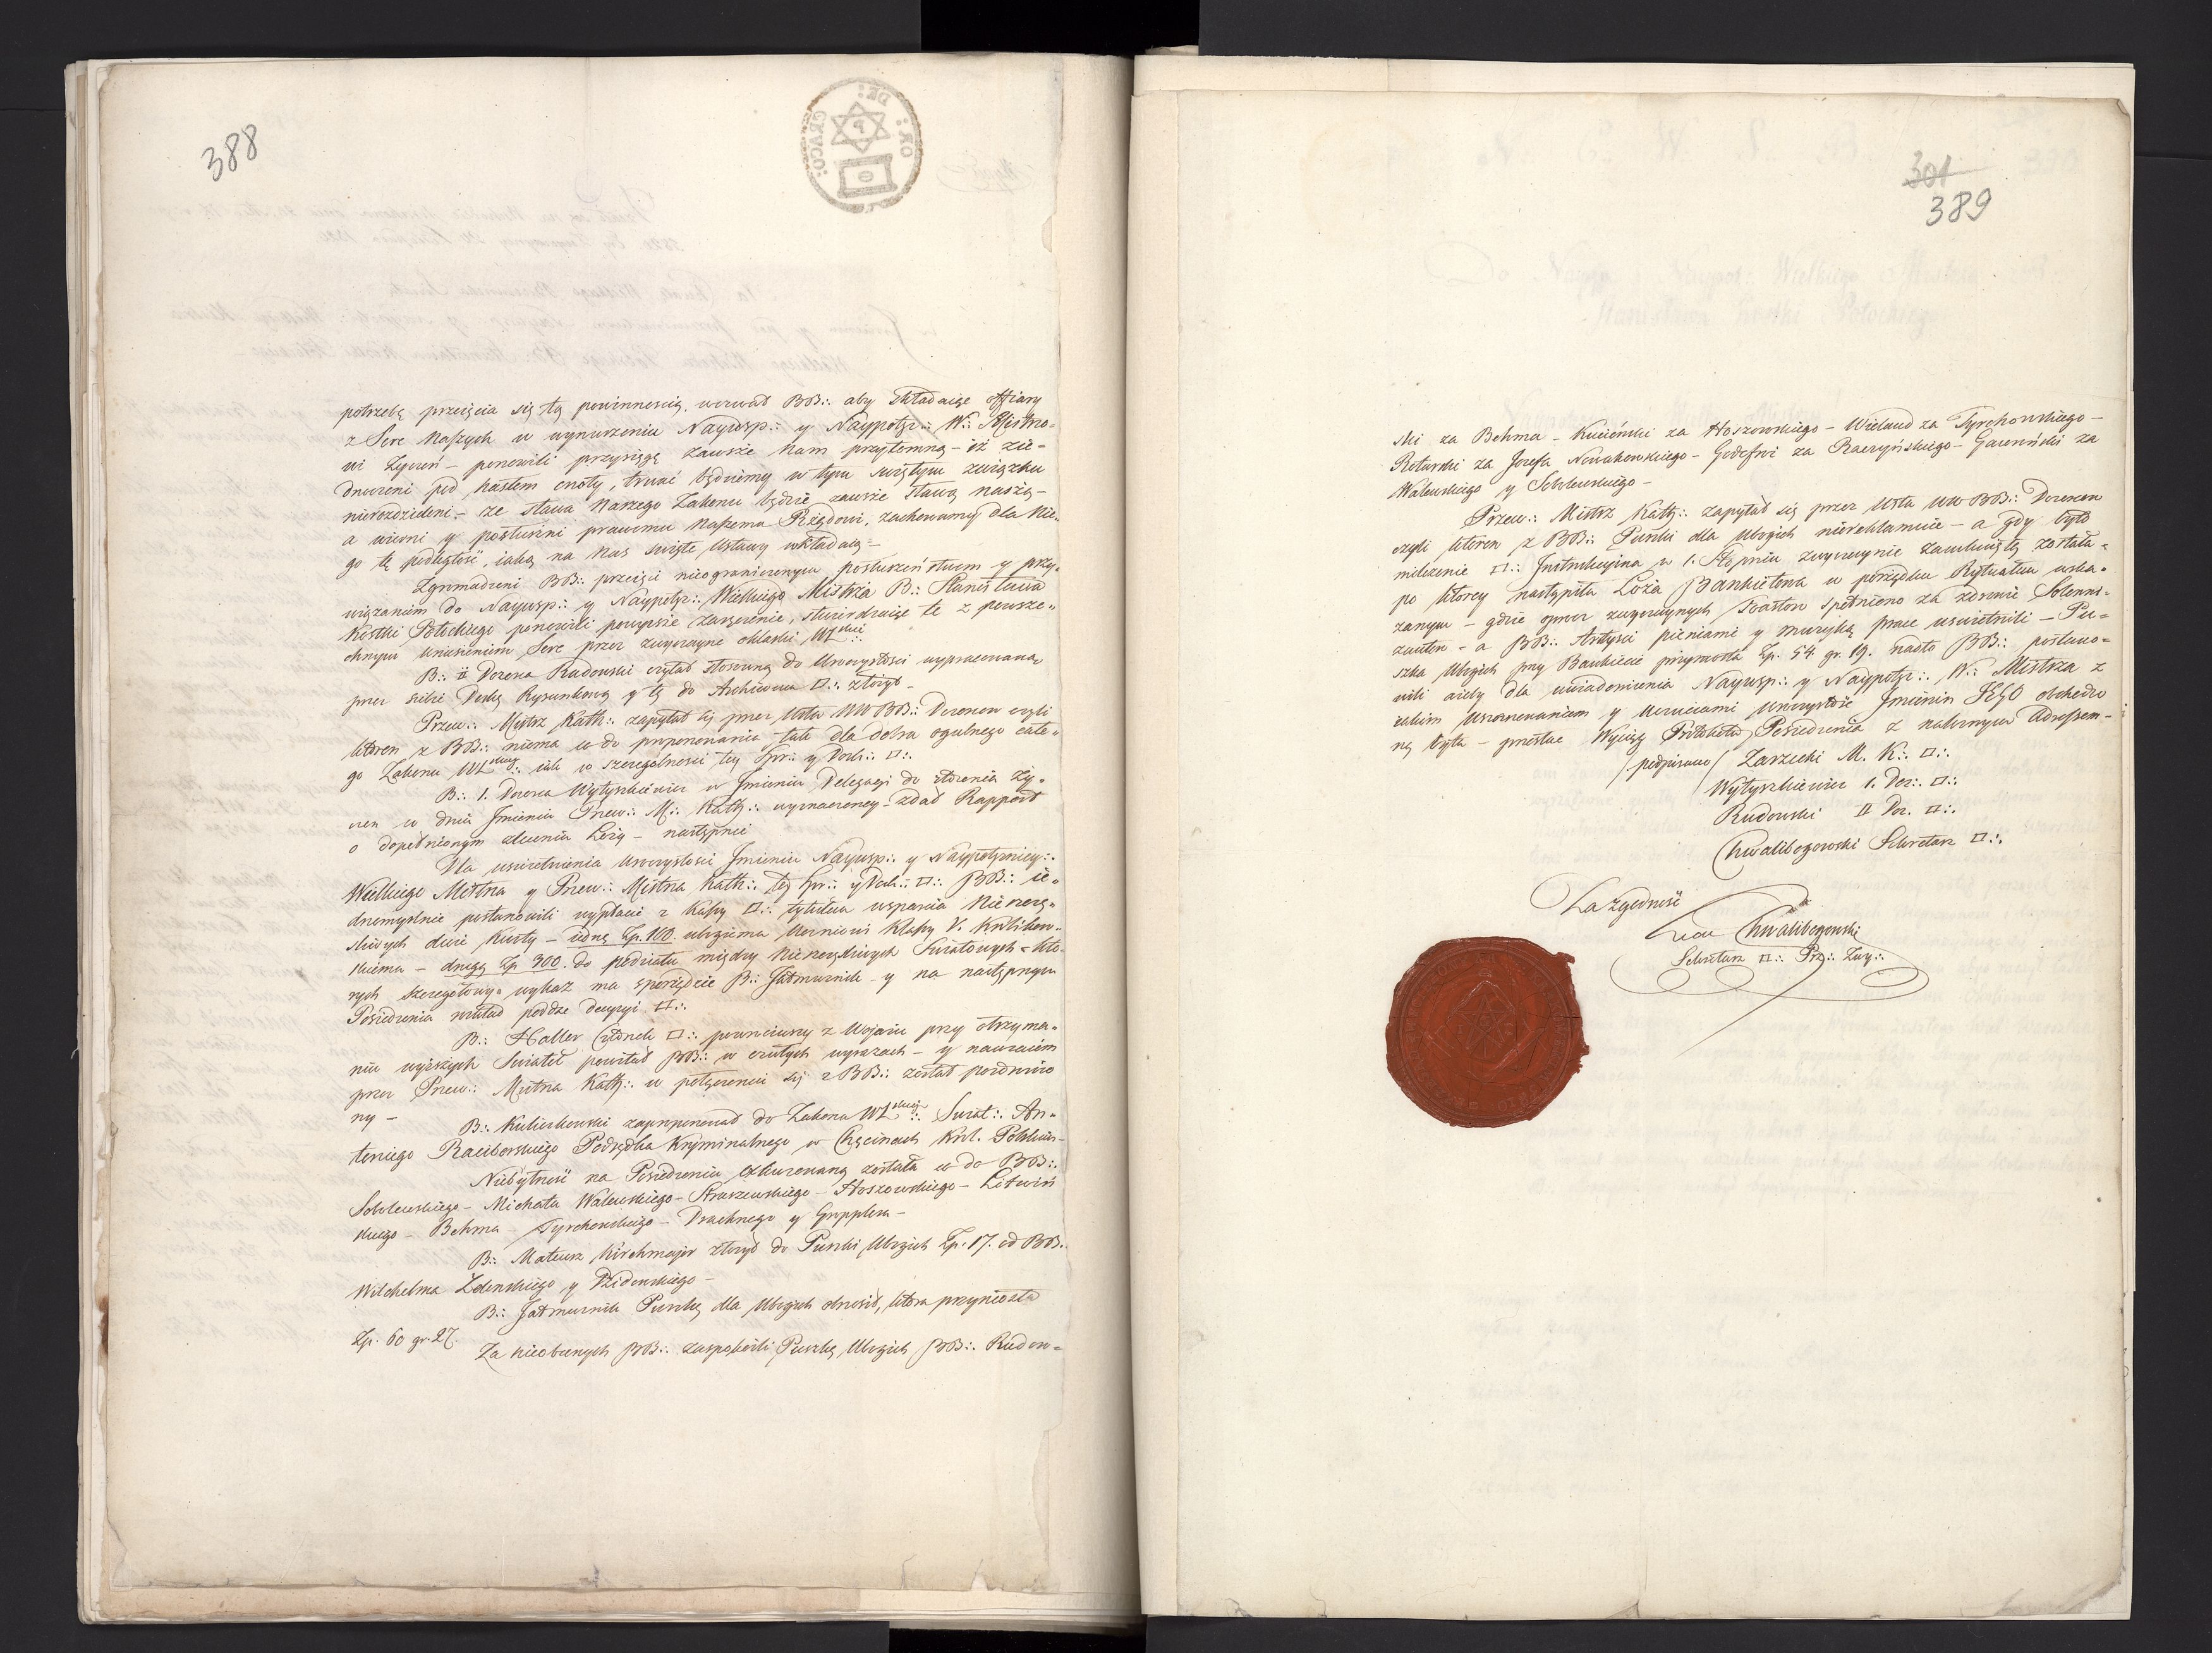 388
OR: CRACO: DE:
potrzebę przejęcia się tą powinnością, wezwał BB∴ aby składaiąc offiary
z Serc Naszych w wynurzeniu Nayusp∴ y Naypotęż∴ W∴ Mistrzo=
wi Życzeń – ponowili przysięgę zawsze Nam przytomną – iż zie=
dnoczeni pod hasłem cnoty, trwać będziemy w tym świętym związku
nierozdzieleni – że sława Naszego Zakonu będzie zawsze sławą naszą –
a wierni y posłuszni prawemu Naszemu Rządowi, zachowamy dla Nie=
go tę podległość, iaką na Nas święte Ustawy wkładaią –
Zgromadzeni BB∴ przejęci nieograniczonym posłuszeństwem y przy=
wiązaniem do Nayusp∴ y Naypotęż∴ Wielkiego Mistrza B∴ Stanisława
Kostki Potockiego ponowili powyższe zaręczenie, stwierdzaiąc te z powsze=
chnym uniesieniem Serc przez zwyczayne oklaski WLskiei∴
B∴ II Dozorca Rudowski czytał stosowną do Uroczystości wypracowaną
przez siebie Deskę Rysunkową y tę do Archiwum □∴ złożył –
Przew∴ Mistrz Kath∴ zapytał się przez Usta WW BB∴ Dozorców czyli
któren z BB∴ niema co do proponowania tak dla dobra ogulnego całe=
go Zakonu WLskiey∴ iak w szczególności tey Spr∴ y Dosk∴ □∴
B∴ 1. Dozorca Wytyszkiewicz w Imieniu Delegacyi do złożenia Ży=
czeń w dniu Imienia Przew∴ M∴ Kath∴ wyznaczoney – zdał Rapport
o dopełnionym zleceniu Loży – następnie
Dla uświetnienia Uroczystości Imienin Nayusp∴ y Naypotężnieysz∴
Wielkiego Mistrza y Przew∴ Mistrza Kath∴ tey Spr∴ y Dosk∴ □∴ BB∴ ie=
dnomyślnie postanowili wypłacić z Kassy □∴ tytułem wsparcia Nieszczę=
śliwych dwie kwoty – iedną Zp. 100. ubogiemu Uczniowi Klassy V. Królikow=
skiemu – drugą Zp 300. do podziału między Nieszczęśliwych Światowych – któ=
rych szczegółowy wykaz ma sporządzić B∴ Jałmużnik – y na następnym
Posiedzeniu rozkład poddać decyzyi □∴
B∴ Haller Członek □∴ powróciwszy z Wojażu przy otrzyma=
niu wyższych Świateł powitał BB∴ w czułych wyrazach – y nawzaiem
przez Przew∴ Mistrza Kath∴ w połączeniu się z BB∴ został pozdrowio
ny –
B∴ Kulierkowski zaproponował do Zakonu WLskiey∴ Świat∴ An=
toniego Raciborskiego Podsędka Kryminalnego w Chęcinach Król. Polskim –
Niebytność na Posiedzeniu exkuzowaną została co do BB∴
Sobolewskiego – Michała Walewskiego – Straszewskiego – Hoszowskiego – Litwiń
skiego – Bohma – Tyrchowskiego – Drachnego y Grepplera –
B∴ Mateusz Kirchmajer złożył do Puszki Ubogich Zp. 17. od BB.
Wilchelma Zelenskiego y Dzidowskiego –
B∴ Jałmużnik Puszkę dla Ubogich obnosił, która przyniosła
Zp. 60 gr. 27.
Za nieobecnych BB∴ zaspokoili Puszkę Ubogich BB∴ Rudow=
301
389
ski za Bohma – Kuciński za Hoszowskiego – Wieland za Tyrchowskiego –
Rotarski za Jozefa Nowakowskiego – Godefroi za Raczyńskiego – za
Walewskiego y Sobolewskiego –
Przew∴ Mistrz Kath∴ zapytał się przez Usta WW BB∴ Dozorców
czyli któren z BB∴ Puszki dla Ubogich niereklamuie – a gdy było
milczenie □∴ Instrukcyina w 1. Stopniu zwyczaynie zamkniętą została –
po którey nastąpiła Loża Bankietowa w porządku Rytuałem wska=
zanym – gdzie oprócz zwyczaynych Toastow spełniono za zdrowie Solenni=
zantów – a BB∴ Artyści pieniami y muzyką prace uświetnili – Pu=
szka Ubogich przy Bankiecie przyniosła Zp. 54. gr. 19. nadto BB∴ postano=
wili ażeby dla uwiadomienia Nayusp∴ y Naypotęż∴ W∴ Mistrza z
iakim Uszanowaniem y Uczuciami Uroczystość Imienin JEGO obchodzo
ną była – przesłać Wyciąg Protokołu Posiedzenia z należnym Adressem –
/podpisano/ Zarzecki M. K∴ □∴
Wytyszkiewicz 1. Doz∴ □∴
Rudowski II Doz. □∴
Chwalibogowski Sekretarz □∴
Za zgodność
Chwalibogowski
Sekretarz □∴ Prz∴ Zwy∴